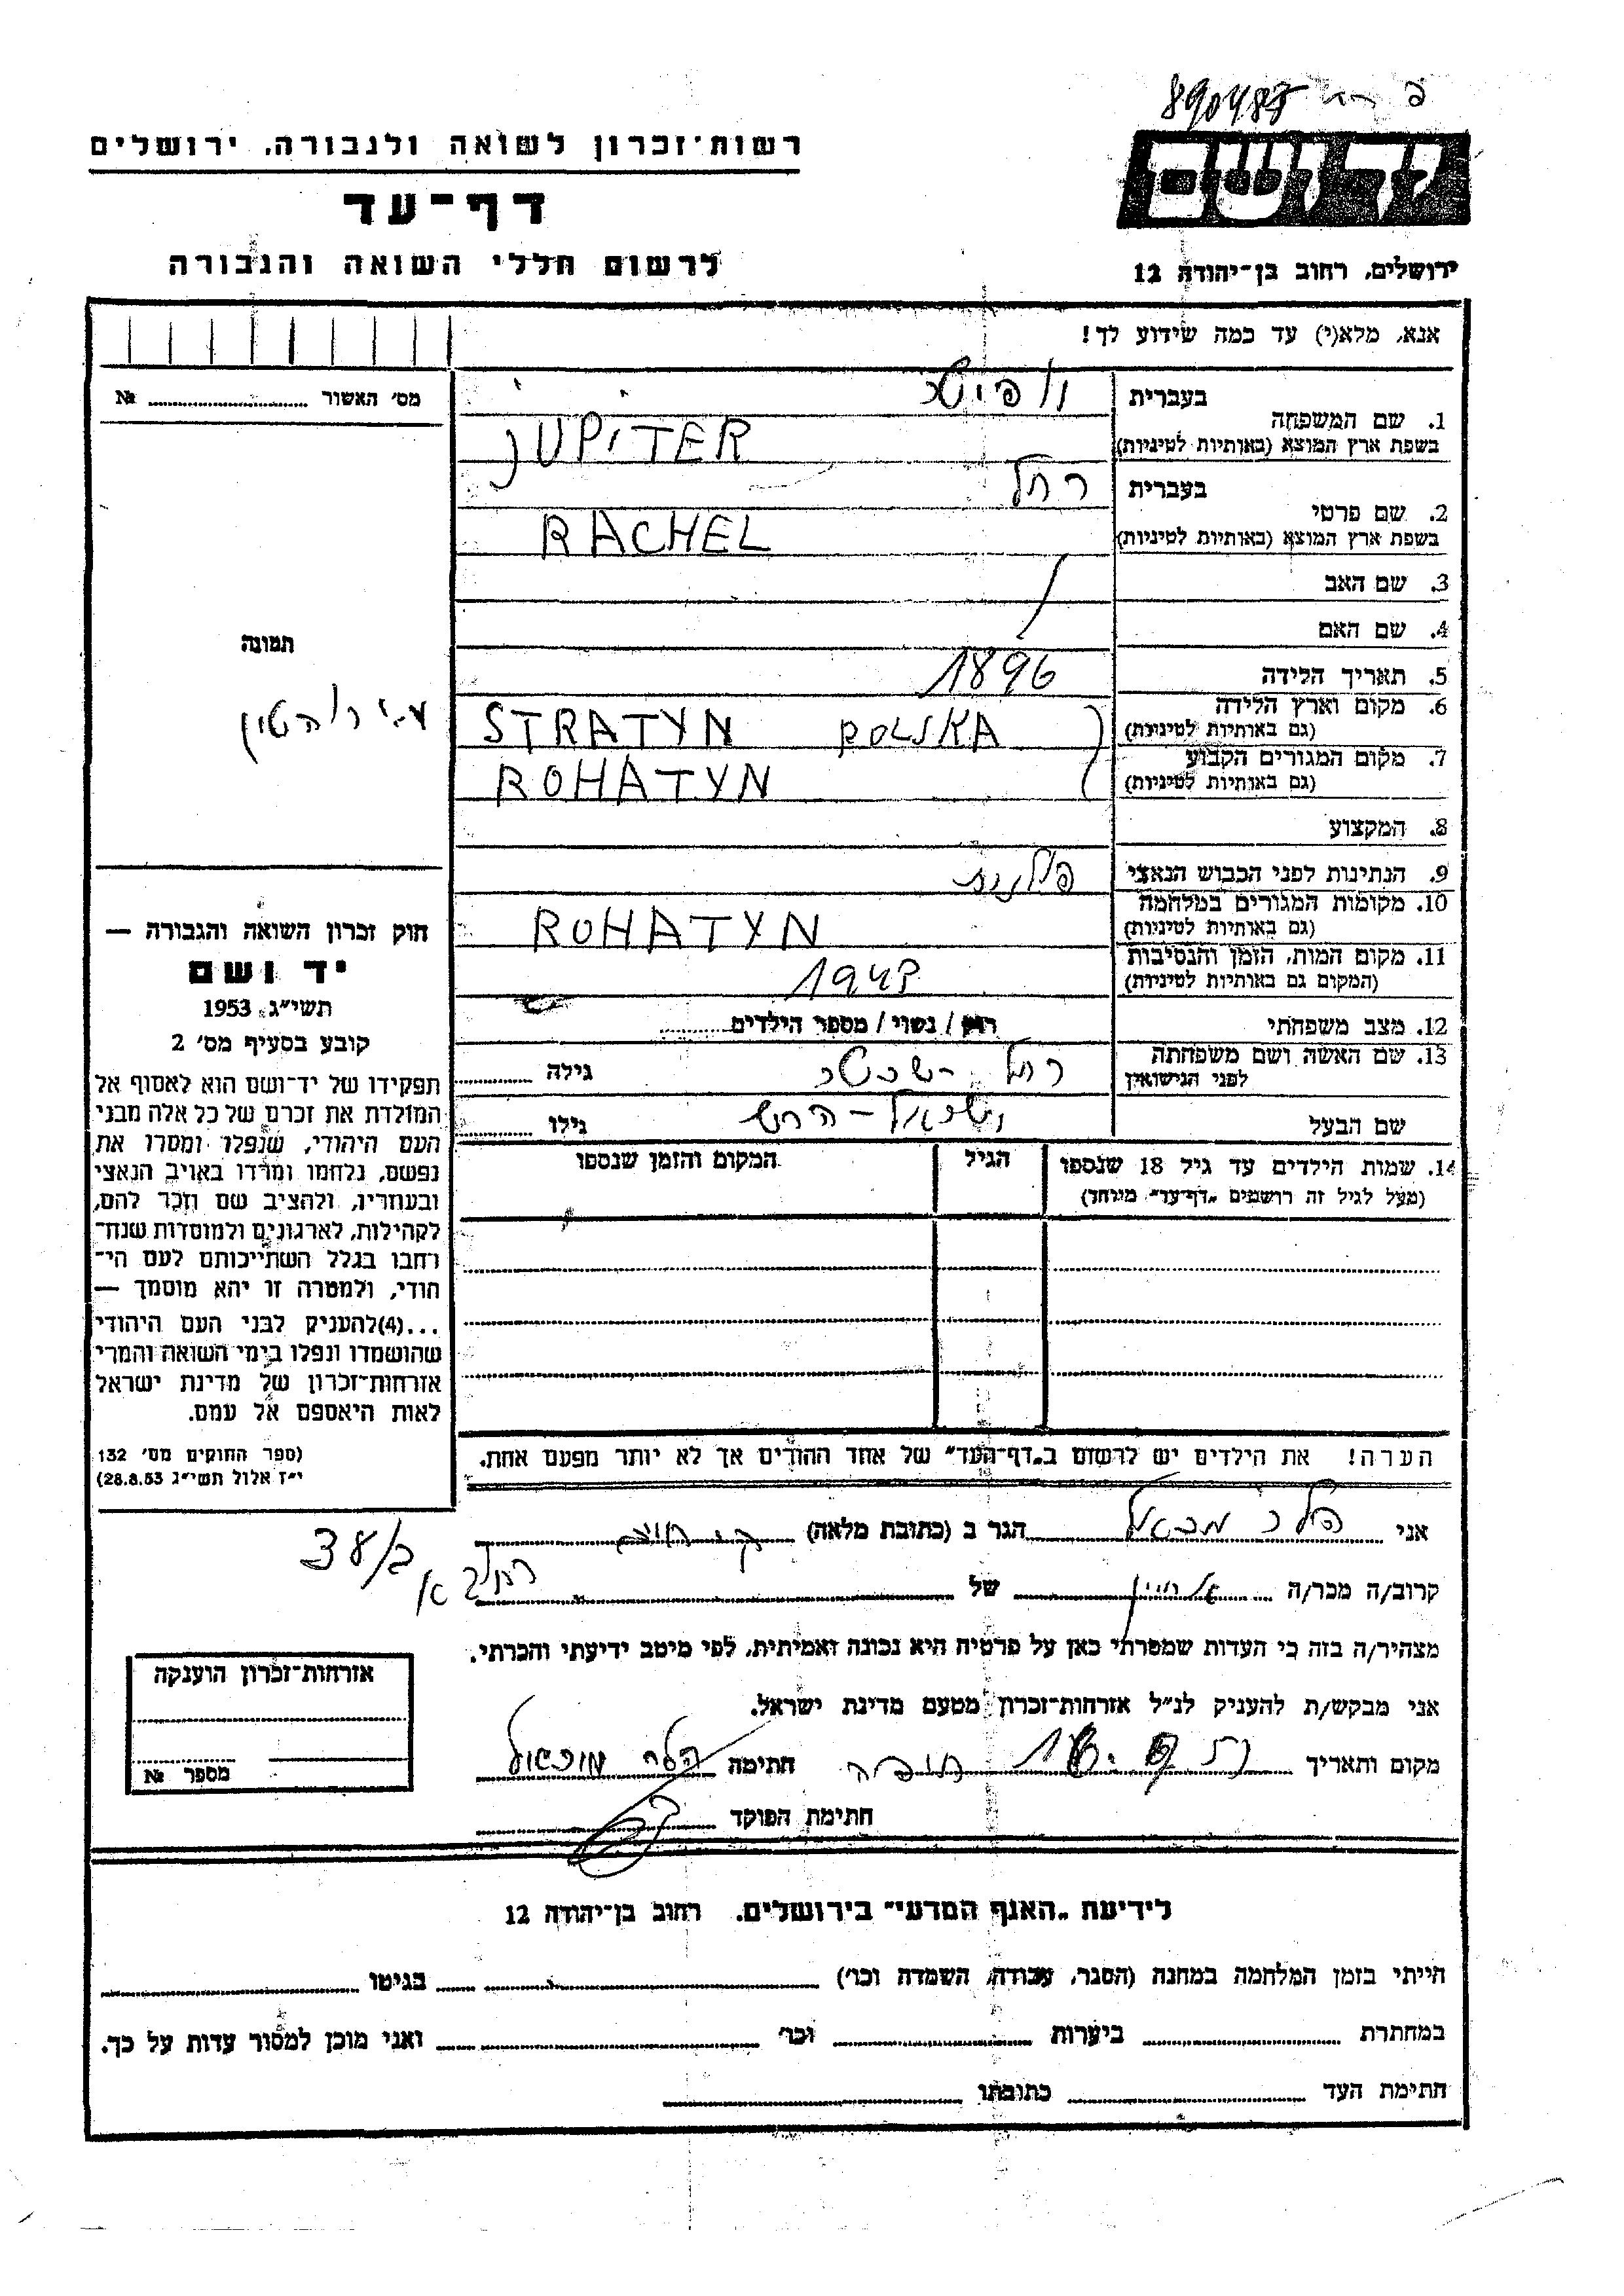 890488
רשות־זכרון לשואה ולגבורה, ירושלים
יד ושם
דף־עד
לרשום חללי השואה והגבורה
ירושלים, רחוב בן־יהודה 12
אנא, מלא(י) עד כמה שידוע לך!
מס׳ האשור № 
1. שם המשפחה
בעברית
בשפת ארץ המוצא (באותיות לטיניות) JUPITER
2. שם פרטי
בעברית רחל
בשפת ארץ המוצא (באותיות לטיניות) RACHEL
3. שם האב
4. שם האם
תמונה
5. תאריך הלידה 1896
6. מקום וארץ הלידה STRATYN POLSKA
(גם באותיות לטיניות)
7. מקום המגורים הקבוע ROHATYN
(גם באותיות לטיניות)
8. המקצוע
9. הנתינות לפני הכבוש הנאצי פולנית
10. מקומות המגורים במלחמה ROHATYN
(גם באותיות לטיניות)
11. מקום המות, הזמן והנסיבות 1943
(המקום גם באותיות לטיניות)
12. מצב משפחתי רווק / נשוי / מספר הילדים
13. שם האשה ושם משפחתה רחל גילה
לפני הנישואין
שם הבעל גילו
14. שמות הילדים עד גיל 18 שנספו הגיל המקום והזמן שנספו
(מעל לגיל זה רושמים „דף־עד״ מיוחד)
חוק זכרון השואה והגבורה —
יד ושם
תשי״ג 1953
קובע בסעיף מס׳ 2
תפקידו של יד־ושם הוא לאסוף אל
המולדת את זכרם של כל אלה מבני
העם היהודי, שנפלו ומסרו את
נפשם, נלחמו ומרדו באויב הנאצי
ובעוזריו, ולהציב שם וזכר להם,
לקהילות, לארגונים ולמוסדות שנח־
רחבו בגלל השתייכותם לעם הי־
הודי, ולמטרה זו יהא מוסמך —
...(4)להעניק לבני העם היהודי
שהושמדו ונפלו בימי השואה והמרי
אזרחות־זכרון של מדינת ישראל
לאות היאספם אל עמם.
(ספר החוקים מס׳ 132
י״ז אלול תשי״ג 28.8.53)
הערה! את הילדים יש לרשום ב„דף־העד״ של אחד ההורים אך לא יותר מפעם אחת.
אני הלר מיכאל הגר ב (כתובת מלאה)
קרוב/ה מכר/ה של
מצהיר/ה בזה כי העדות שמסרתי כאן על פרטיה היא נכונה ואמיתית, לפי מיטב ידיעתי והכרתי.
אני מבקש/ת להעניק לנ״ל אזרחות־זכרון מטעם מדינת ישראל.
מקום ותאריך חתימה הלר מיכאל
חתימת הפוקד
אזרחות־זכרון הוענקה
מספר №
לידיעת „האגף המדעי״ בירושלים, רחוב בן־יהודה 12
הייתי בזמן המלחמה במחנה (הסגר, עבודה, השמדה וכו׳) בגיטו
במחתרת ביערות וכו׳ ואני מוכן למסור עדות על כך.
חתימת העד כתובתו